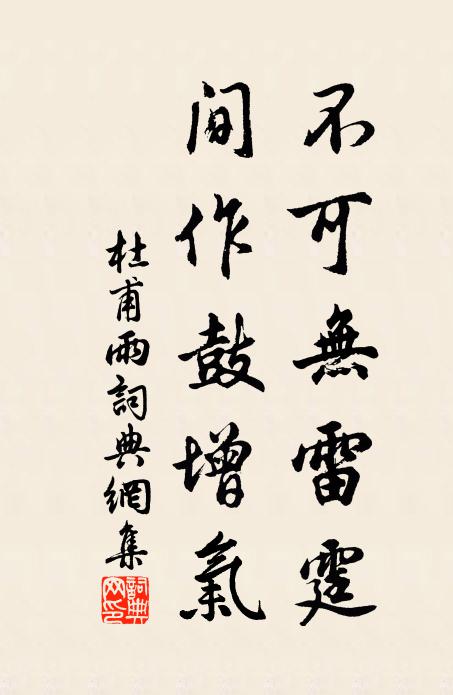 不可無雷霆
間作鼓增氣
杜甫雨詞典網集
詞典网印